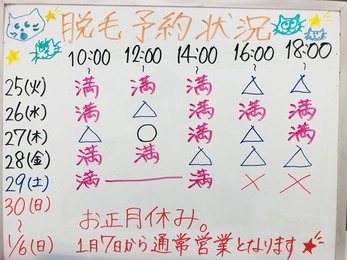 脱毛予約状況
10:00 12:00 14:00 16:00 18:00
25(火) 満 満 満 △ △
26(水) 満 △ 満 満 満
27(木) △ ○ 満 △ 満
28(金) 満 満 △ △ △
29(土) 満 ― 満 × ×
30(日)
〜
1/6(日)
お正月休み。
1月7日から通常営業となります